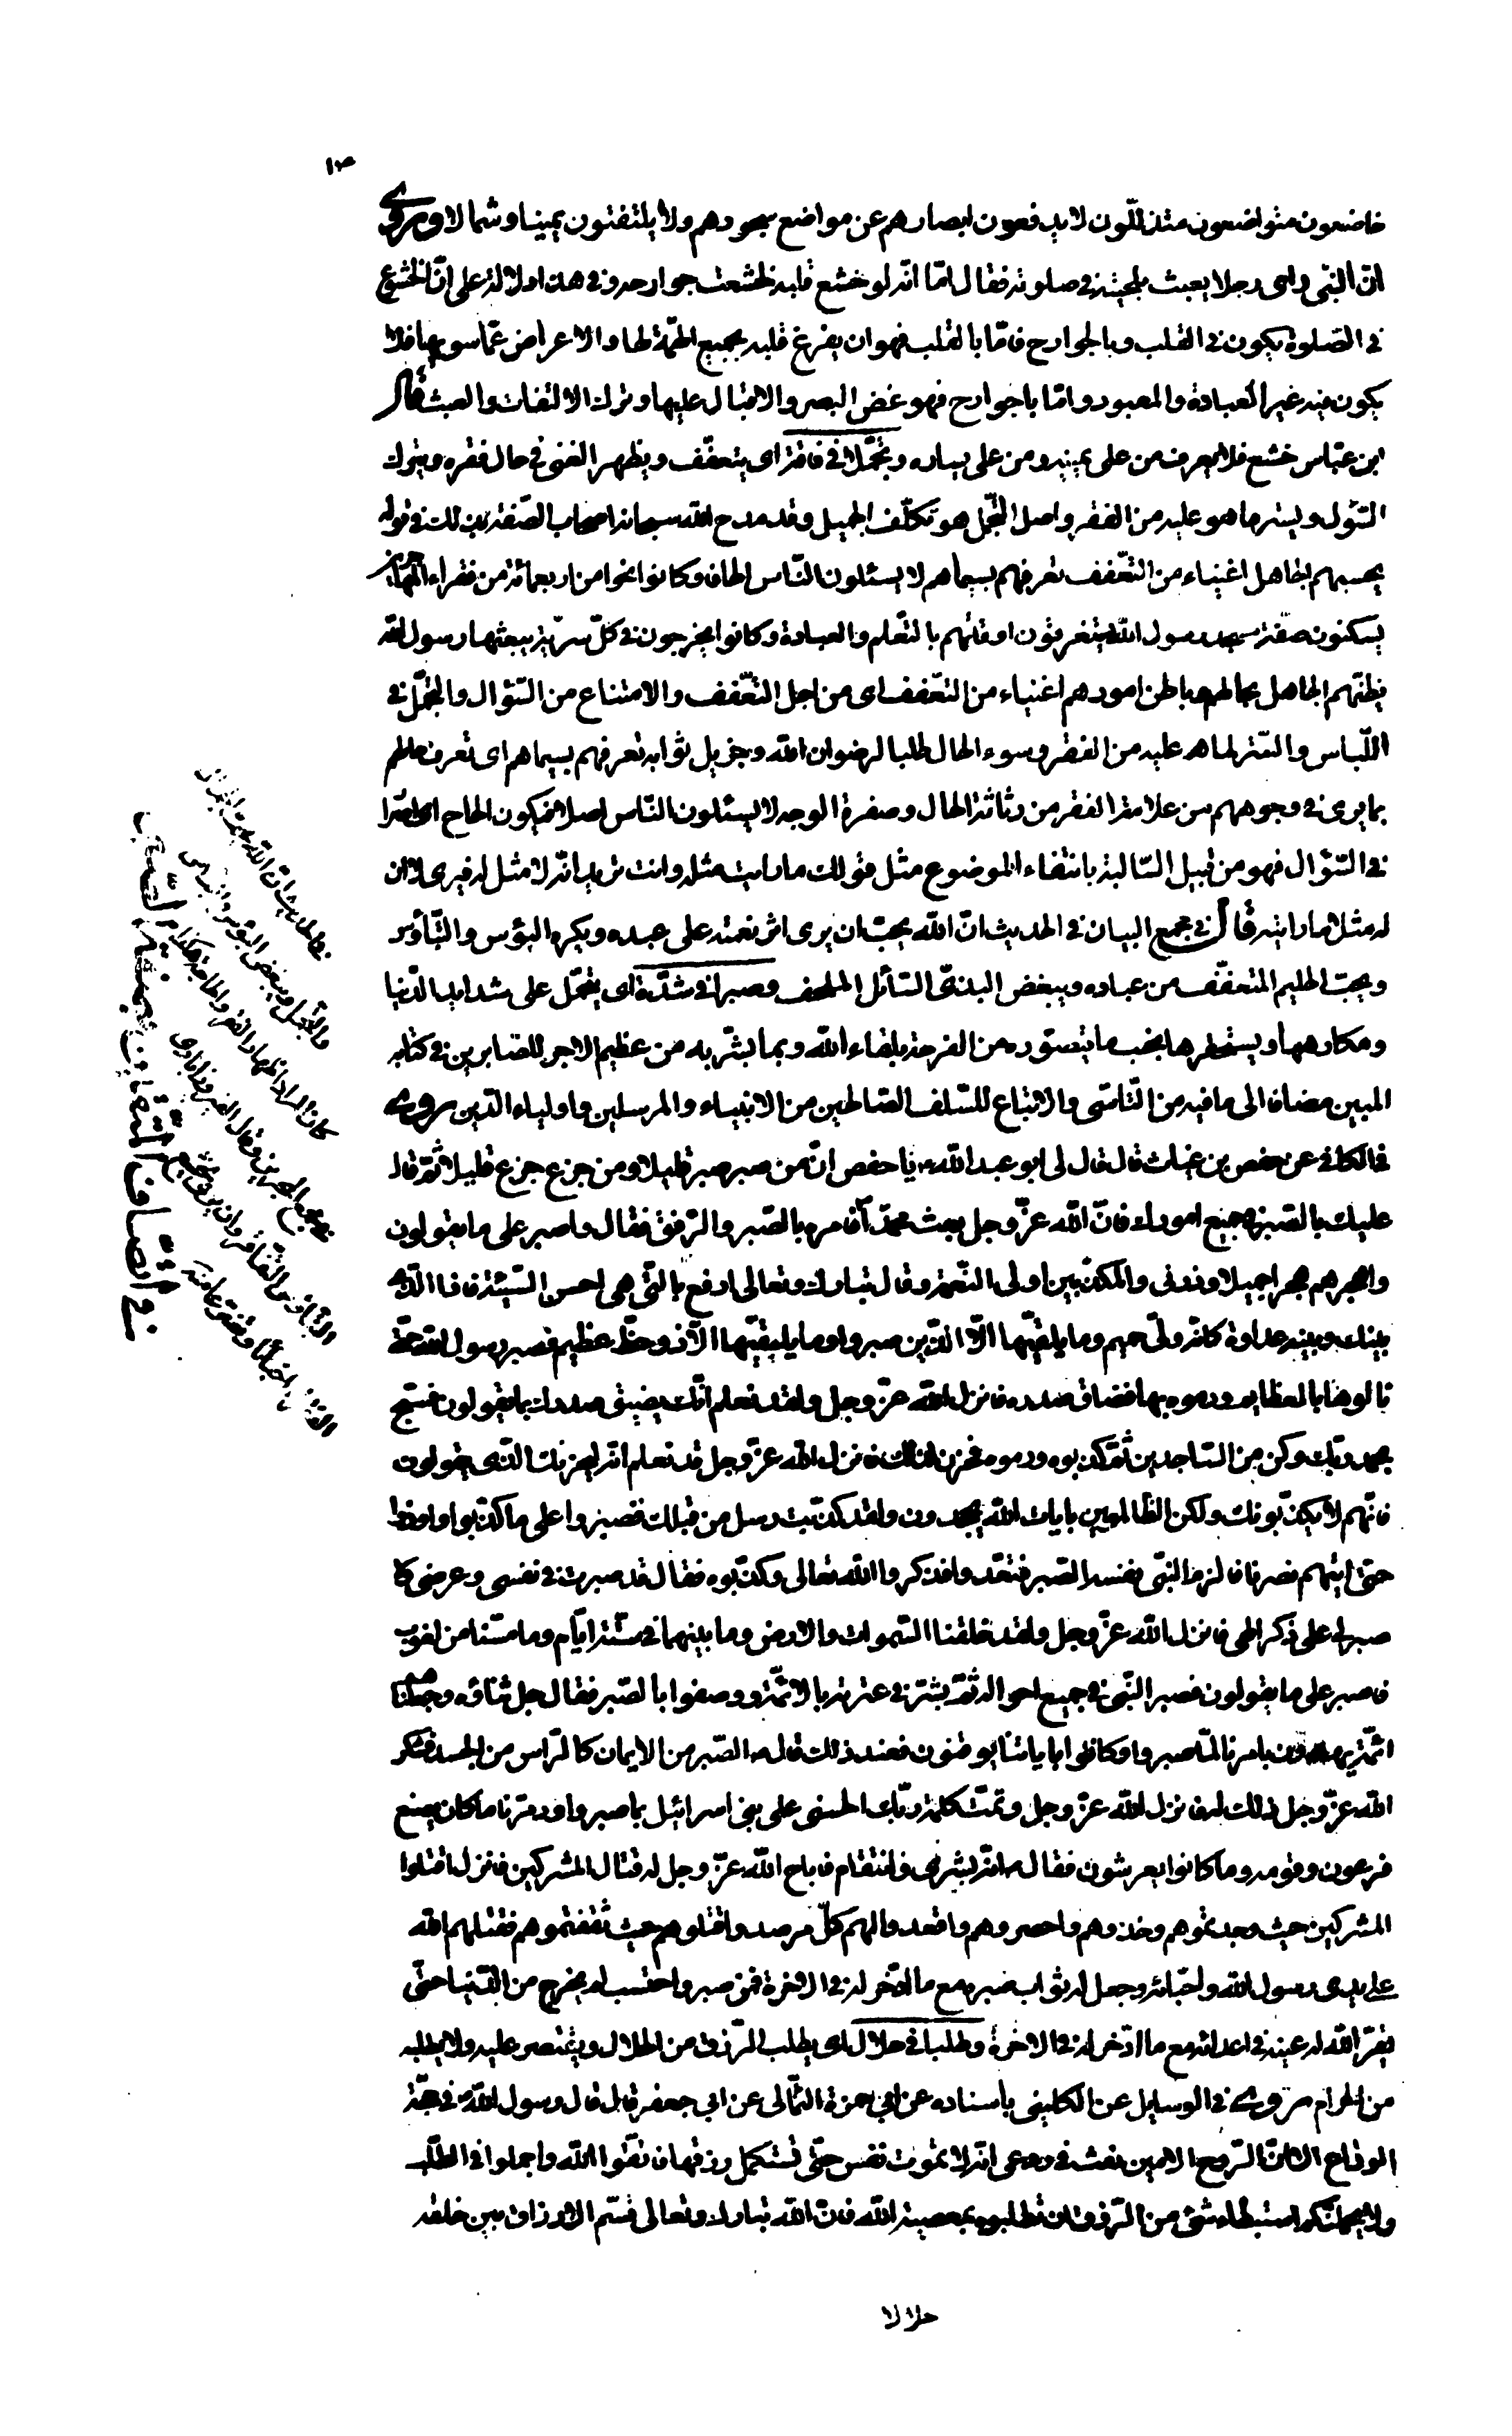 خاضعون متواضعون متذلّلون لا يرفعون ابصارهم عن مواضع سجودهم ولا يلتفتون يمينا وشمالا وروى
انّ النّبى راى رجلا يعبث بلحيته فى صلوته فقال امّا انّه لو خشع قلبه لخشعت جوارحه وفى هذا دلالة على انّ الخشوع
فى الصّلوة يكون فى القلب وبالجوارح فامّا بالقلب فهو ان يفرغ قلبه بجميع الهمّة لها والاعراض عمّا سويها فلا
يكون فيه غير العبادة والمعبود وامّا باجوارح فهو غض البصر والاقبال عليها وترك الالتفات والعبث قال
ابن عبّاس خشع فلا يعرف من على يمينه ومن على يساره وتجمّلا فى فاقة اى يتعفّف ويظهر الغنى فى حال فقره ويترك
السّؤل ويستر ما هو عليه من الفقر واصل التّجمّل هو تكلّف الجميل وقد مدح الله سبحانه اصحاب الصّفة بذلك فى قوله
يحسبهم الجاهل اغنياء من التعّفف تعرفهم بسيماهم لا يسئلون النّاس الحافا وكانوا نحوا من اربعمائة من فقراء المهاجرين
يسكنون صفة مسجد رسول الله يستغرقون اوقاتهم بالتّعلم والعبادة وكانوا يخرجون فى كلّ سريّة يبعثها رسول الله
يظنّهم الجاهل بحالهم وباطن امورهم اغنياء من التعّفف اى من اجل التعّفف والامتناع من السّؤال والتجمّل فى
اللّباس والسّتر لما هم عليه من الفقر وسوء الحال طلبا لرضوان الله وجزيل ثوابه تعرفهم بسيماهم اى تعرف حالهم
بما يرى فى وجوههم من علامة الفقر من رثاثة الحال وصفرة الوجه لا يسئلون النّاس اصلا فيكون الحاح اى اصرارا
فى السّؤال فهو من قبيل السّالبة بانتفاء الموضوع مثل قولك ما رايت مثله وانت تريد انّه لا مثل له فيرى لا ان
له مثلا ما رايته قال فى مجمع البيان فى الحديث انّ الله يحبّ ان يرى اثر نعمته على عبده ويكره البؤس والتّباؤس
ويحبّ الحليم المتعفّف من عباده ويبغض البذىّ السّائل الملحف وصبرا فى شدّة اى يتحمّل على شدايد الدّنيا
ومكارهها ويستحقرها بجنب ما يتصوّره من الفرحة بلقاء الله وبما بشّر به من عظيم الاجر للصّابرين فى كتابه
المبين مضافا الى ما فيه من التّاسّى والاتباع للسّلف الصّالحين من الانبياء والمرسلين واولياء الدّين روى
فى الكافى عن حفص بن غياث قال قال لى ابو عبد الله يا حفص انّ من صبر صبر قليلا ومن جزع جزع قليلا ثمّ قال
عليك بالصّبر فى جميع امورك فانّ الله عزّ وجل بعث محمّدا فامره بالصّبر والرّفق فقال واصبر على ما يقولون
واهجرهم هجرا جميلا وذرنى والمكذّبين اولى النّعمة وقال تبارك وتعالى ادفع بالّتى هى احسن السّيئة فاذا الّذى
بينك وبينه عداوة كانّه ولىّ حميم وما يلقيّها الّا الذّين صبروا وما يلقيّها الّا ذو حظّ عظيم فصبر رسول الله حتّى
نالوه بالعظايم ورموه بها فضاق صدره فانزل الله عزّ وجل ولقد نعلم انّك يضيق صدرك بما يقولون فسبّح
بحمد ربّك وكن من السّاجدين ثمّ كذّبوه ورموه فحزن لذلك فانزل الله عزّ وجل قد نعلم انّه ليحزنك الّذى يقولون
فانّهم لا يكذّبونك ولكن الظّالمين بايات الله يجحدون ولقد كذّبت رسل من قبلك فصبروا على ما كذّبوا واوذوا
حتّى اتيهم نصرنا فالزم النّبى نفسه الصّبر فتعّدوا فذكروا الله تعالى وكذّبوه فقال قد صبرت فى نفسى وعرضى ولا
صبر لى على ذكر الهى فانزل الله عزّ وجل ولقد خلقنا السّموات والارض وما بينهما فى ستّة ايّام وما مسّنا من لغوب
فاصبر على ما يقولون فصبر النّبى فى جميع احواله ثمّ بشّر فى عترته بالائمّة ووصفوا بالصّبر فقال جل ثناؤه وجعلنا منهم
ائمّة يهدون بامرنا لمّا صبروا وكانوا باياتنا يوقنون فعند ذلك قال الصّبر من الايمان كالرّاس من الجسد فشكر
الله عزّ وجل ذلك له فانزل الله عزّ وجل وتمّت كلمة ربّك الحسنى على بنى اسرائيل بما صبروا ودمّرنا ما كان يصنع
فرعون وقومه وما كانوا يعرشون فقال انّه بشرى وانتقام فاباح الله عزّ وجل له قتال المشركين فانزل اقتلوا
المشركين حيث وجدتموهم وخذوهم واحصروهم واقعدوا لهم كلّ مرصد واقتلوهم حيث ثقفتموهم فقتلهم الله
على يدى رسول الله واحبّائه وجعل له ثواب صبره مع ما ادّخر له فى الاخرة فمن صبر واحتسب لم يخرج من الدّنيا حتّى
يقرّ الله له عينه فى اعدائه مع ما ادّخر له فى الاخرة وطلبا فى حلال اى يطلب الرّزق من الحلال ويقتصر عليه ولا يطلبه
من الحرام روى فى الوسايل عن الكلينى باسناده عن ابى حمزة الثّمالى عن ابى جعفر قال قال رسول الله فى حجّة
الوداع الا انّ الرّوح الامين نفث فى روعى انّه لا تموت نفس حتّى تستكمل رزقها فاتّقوا الله واجملوا فى الطّلب
ولا يحملنّكم استبطاء شئ من الرّزق ان تطلبوه بمعصية الله فانّ الله تبارك وتعالى قسّم الارزاق بين خلقه
حلالا